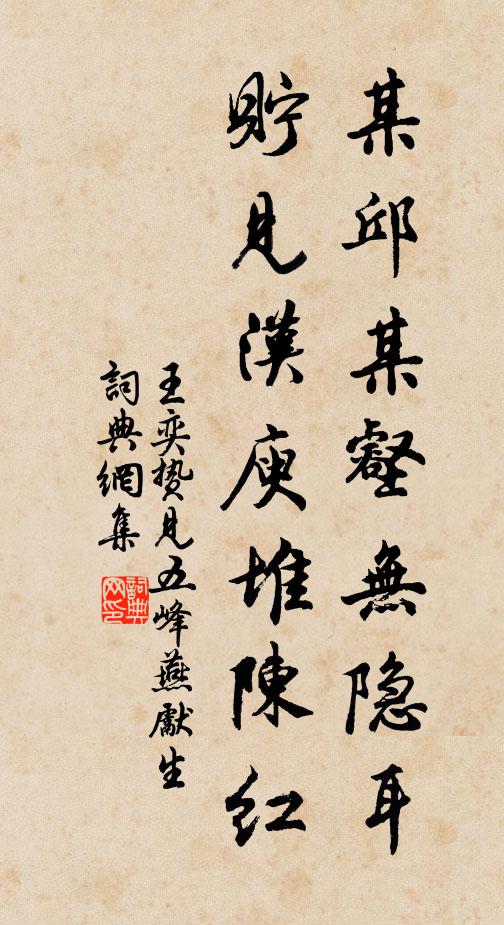 某邱某壑無隐耳
貯見漢庾堆陳红
王奕贄見五峰燕獻生
詞典網集
詞典
网印